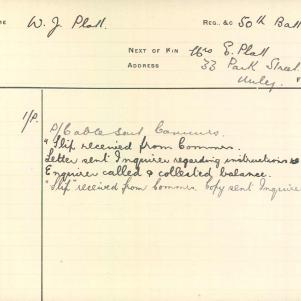 W. J. Platt. REG., &C 50th Batt
NEXT OF KIN Mrs E. Platt
ADDRESS 33 Park Street.
Unley.
1/P.
P/Cable sent Commrs.
"Slip received from Commrs.
Letter sent Inquirer regarding instructions
Enquirer called & collected balance.
"Slip" received from Commrs. Copy sent Inquirer